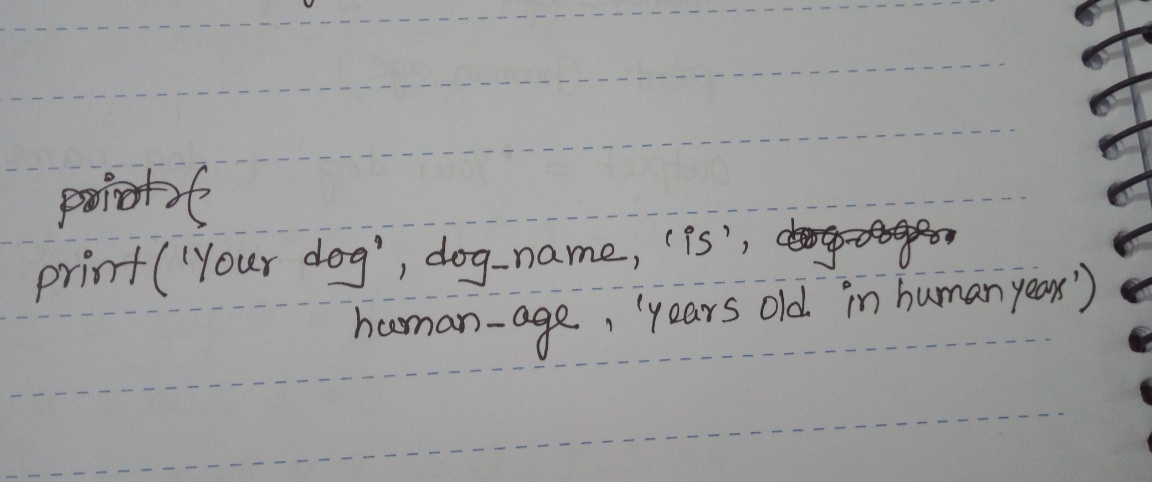 print(
print('Your dog', dog_name, 'is',
human_age, 'years old in human years')